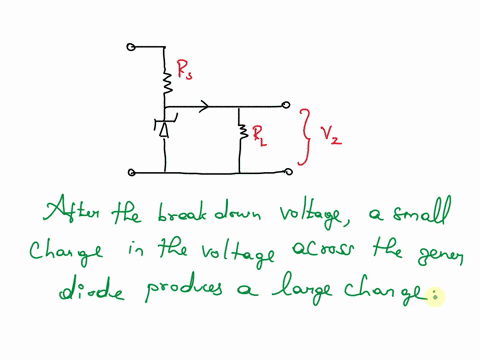 Rs
RL
Vz
After the break down voltage, a small
change in the voltage across the gener
diode produces a large change